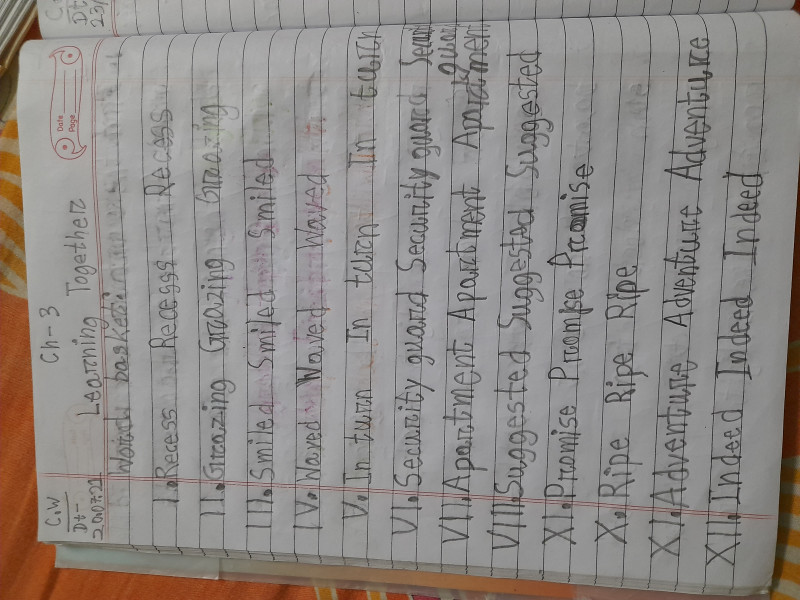 C.W
Dt-
Ch-3
Date
Page
Learning Together
Word basket:
I. Recess Recess Recess
II. Grazing Grazing Grazing
III. Smiled Smiled Smiled
IV. Waved Waved Waved
V. In turn In turn In turn
VI. Security guard Security guard Security guard
VII. Apartment Apartment Apartment
VIII. Suggested Suggested Suggested
XI. Promise Promise Promise
X. Ripe Ripe Ripe
XI. Adventure Adventure Adventure
XII. Indeed Indeed Indeed